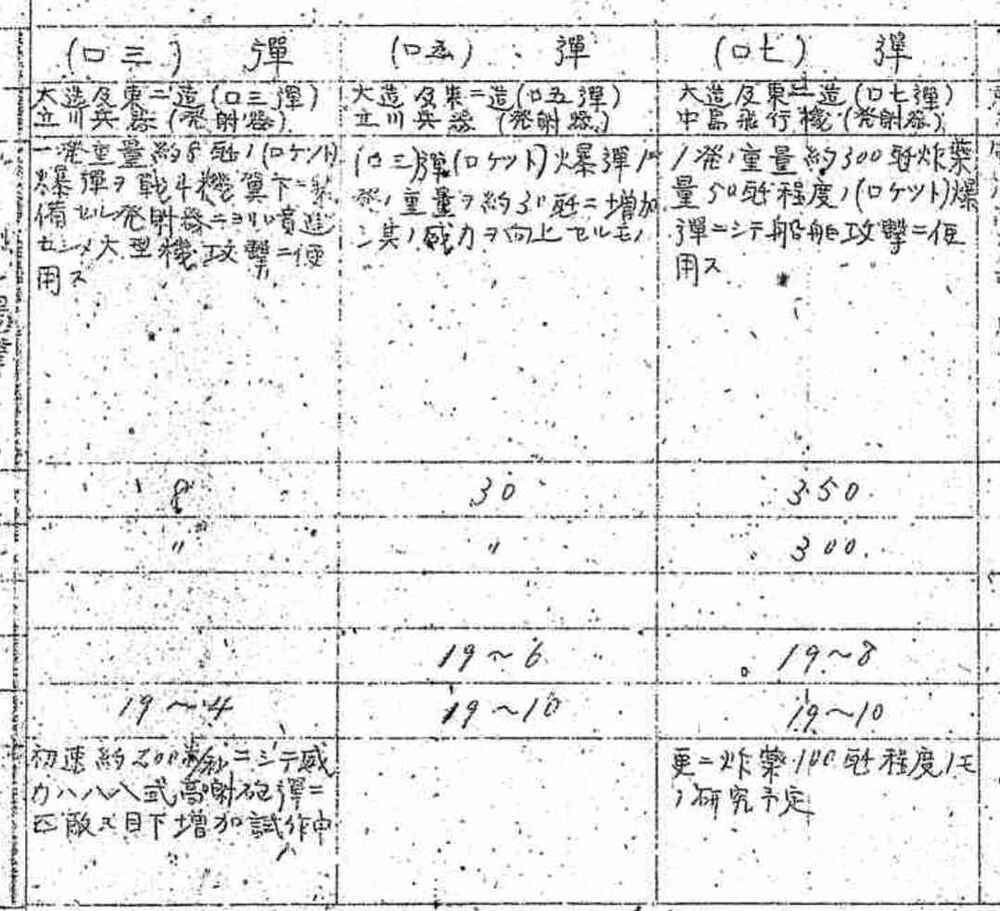 (ロ三) 彈
大造及東二造(ロ三彈)
立川兵器(発射器)
一発重量約8瓩ノ(ロケット)
爆彈ヲ戦斗機翼下ニ装
備セル発射器ニヨリ噴進
セシメ大型機攻撃ニ使
用ス
8
〃
19～4
初速約200米/秒ニシテ威
力ハ八八式高射砲彈ニ
匹敵ス目下増加試作中
(ロ五) 彈
大造及東二造(ロ五彈)
立川兵器(発射器)
(ロ三)彈(ロケット)爆彈ノ1
発ノ重量ヲ約30瓩ニ増加
シ其ノ威力ヲ向上セルモノ
30
〃
19～6
19～10
(ロ七) 彈
大造及東二造(ロ七彈)
中島飛行機(発射器)
1発ノ重量約300瓩炸藥
量50瓩程度ノ(ロケット)爆
彈ニシテ船舶攻撃ニ使
用ス
350
300
19～8
19～10
更ニ炸藥100瓩程度ノモ
ノ研究予定